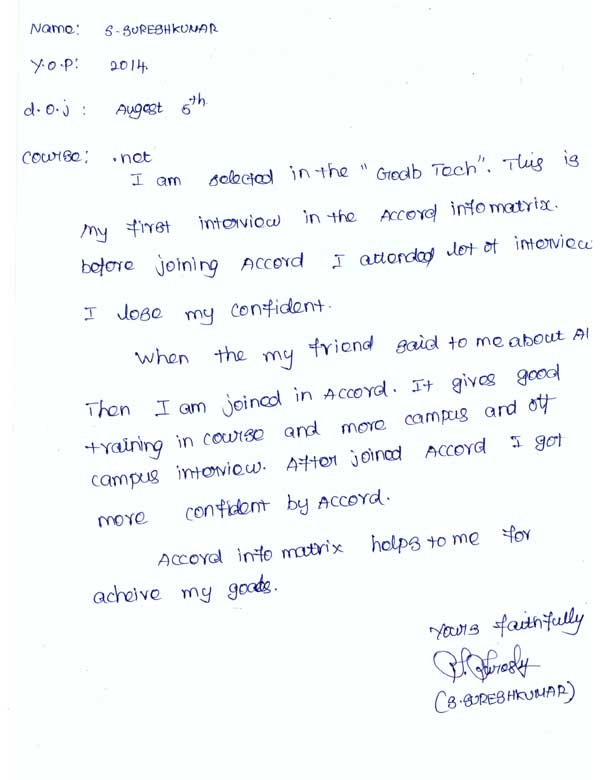 Name: S. SURESHKUMAR
Y.O.P: 2014
d.o.j: August 5th
course: .net
I am selected in the "Godb Tech". This is
my first interview in the Accord infomatrix.
before joining Accord I attended lot of interview
I lose my confident.
When the my friend said to me about AI
Then I am joined in Accord. It gives good
training in course and more campus and off
campus interview. After joined Accord I got
more confident by Accord.
Accord info matrix helps to me for
acheive my goals.
Yours faithfully
(S. SURESHKUMAR)